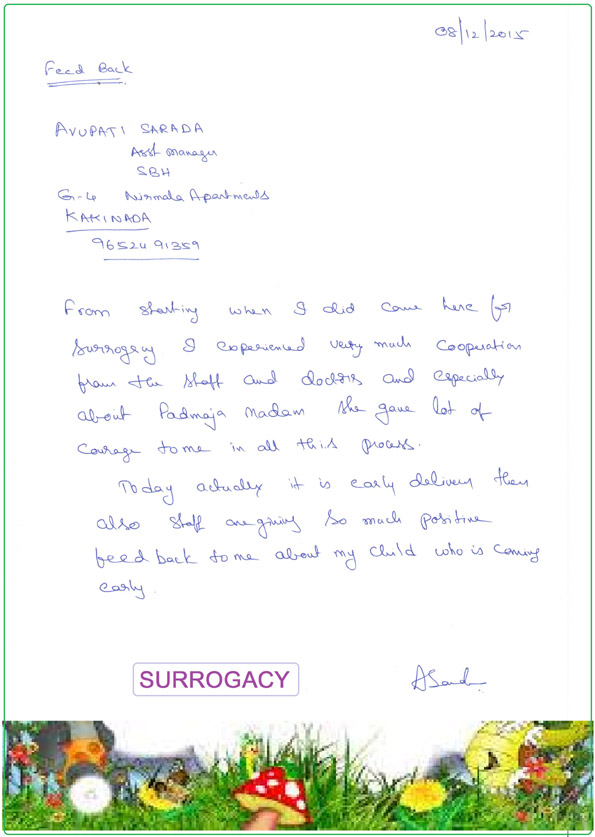 08/12/2015
Feed Back
AVUPATI SARADA
Asst Manager
SBH
G-4 Nirmala Apartments
KAKINADA
96524 91359
From starting when I did came here for
Surrogacy I experienced very much cooperation
from the staff and doctors and especially
about Padmaja Madam she gave lot of
courage to me in all this process.
Today actually it is early delivery then
also staff are giving so much positive
feed back to me about my child who is coming
early.
SURROGACY